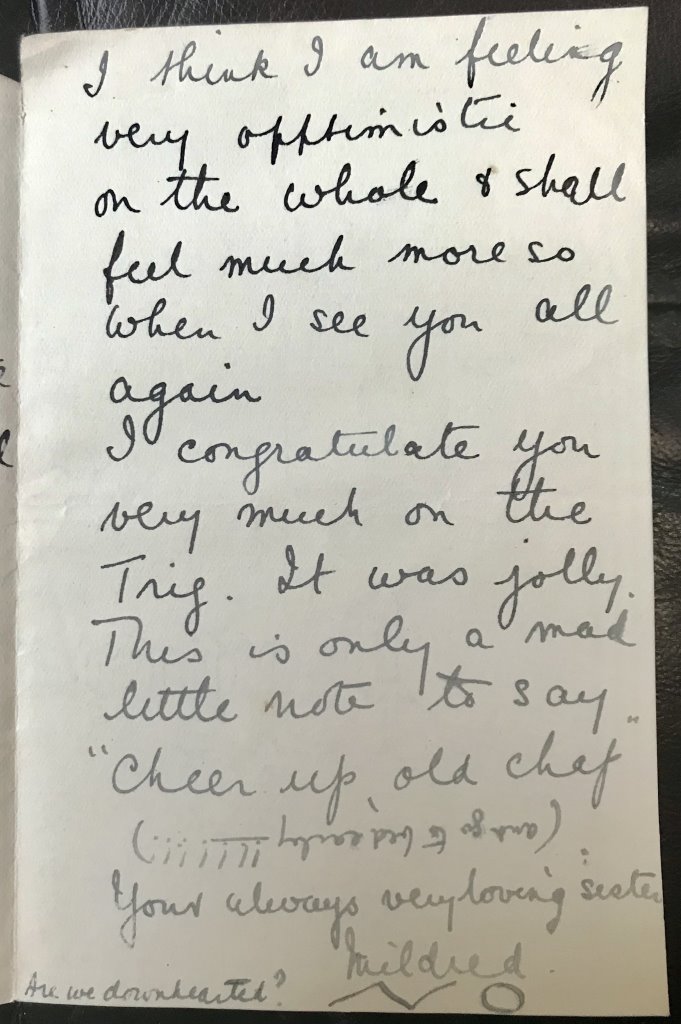 I think I am feeling
very opptimistic
on the whole & shall
feel much more so
when I see you all
again
I congratulate you
very much on the
Trig. It was jolly.
This is only a mad
little note to say
"Cheer up old chap"
(and go to bed early !!!!!!!)
Your always very loving sister
Mildred.
Are we downhearted? NO